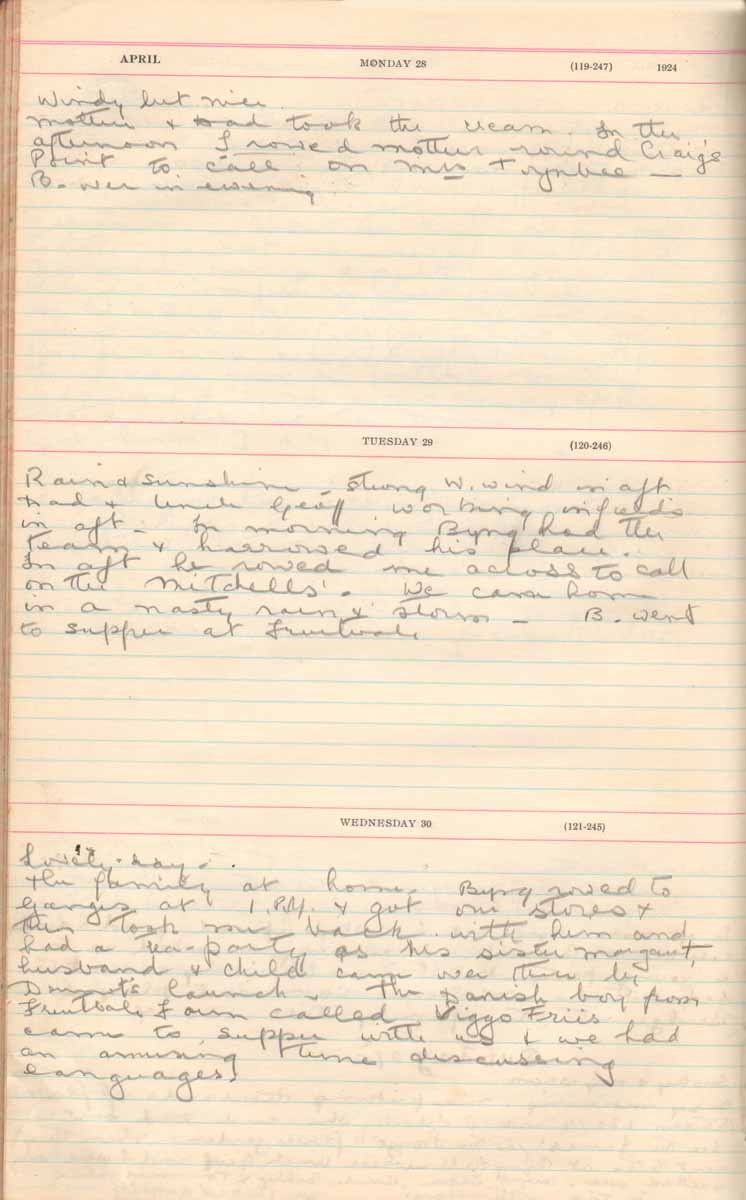 APRIL MONDAY 28 (119-247) 1924
Windy but nice.
Mother & Dad took the cream. In the
afternoon I rowed mother round Craig's
Point to call on Mrs Toynbee —
B. over in evening
TUESDAY 29 (120-246)
Rain & sunshine - strong W. wind in aft
Dad & Uncle Geoff working in fields
in aft - In morning Byng had the
team & harrowed his place.
In aft he rowed me across to call
on the Mitchells'. We came home
in a nasty rain & storm - B. went
to supper at Fruitvale
WEDNESDAY 30 (121-245)
Lovely day -
The family at home. Byng rowed to
Ganges at 1. P.M. & got our stores &
then took me back with him and
had a tea-party as his sister Margaret,
husband & child came over there by
launch. The Danish boy from
Fruitvale Farm called Viggo Friis
came to supper with us & we had
an amusing time discussing
languages!